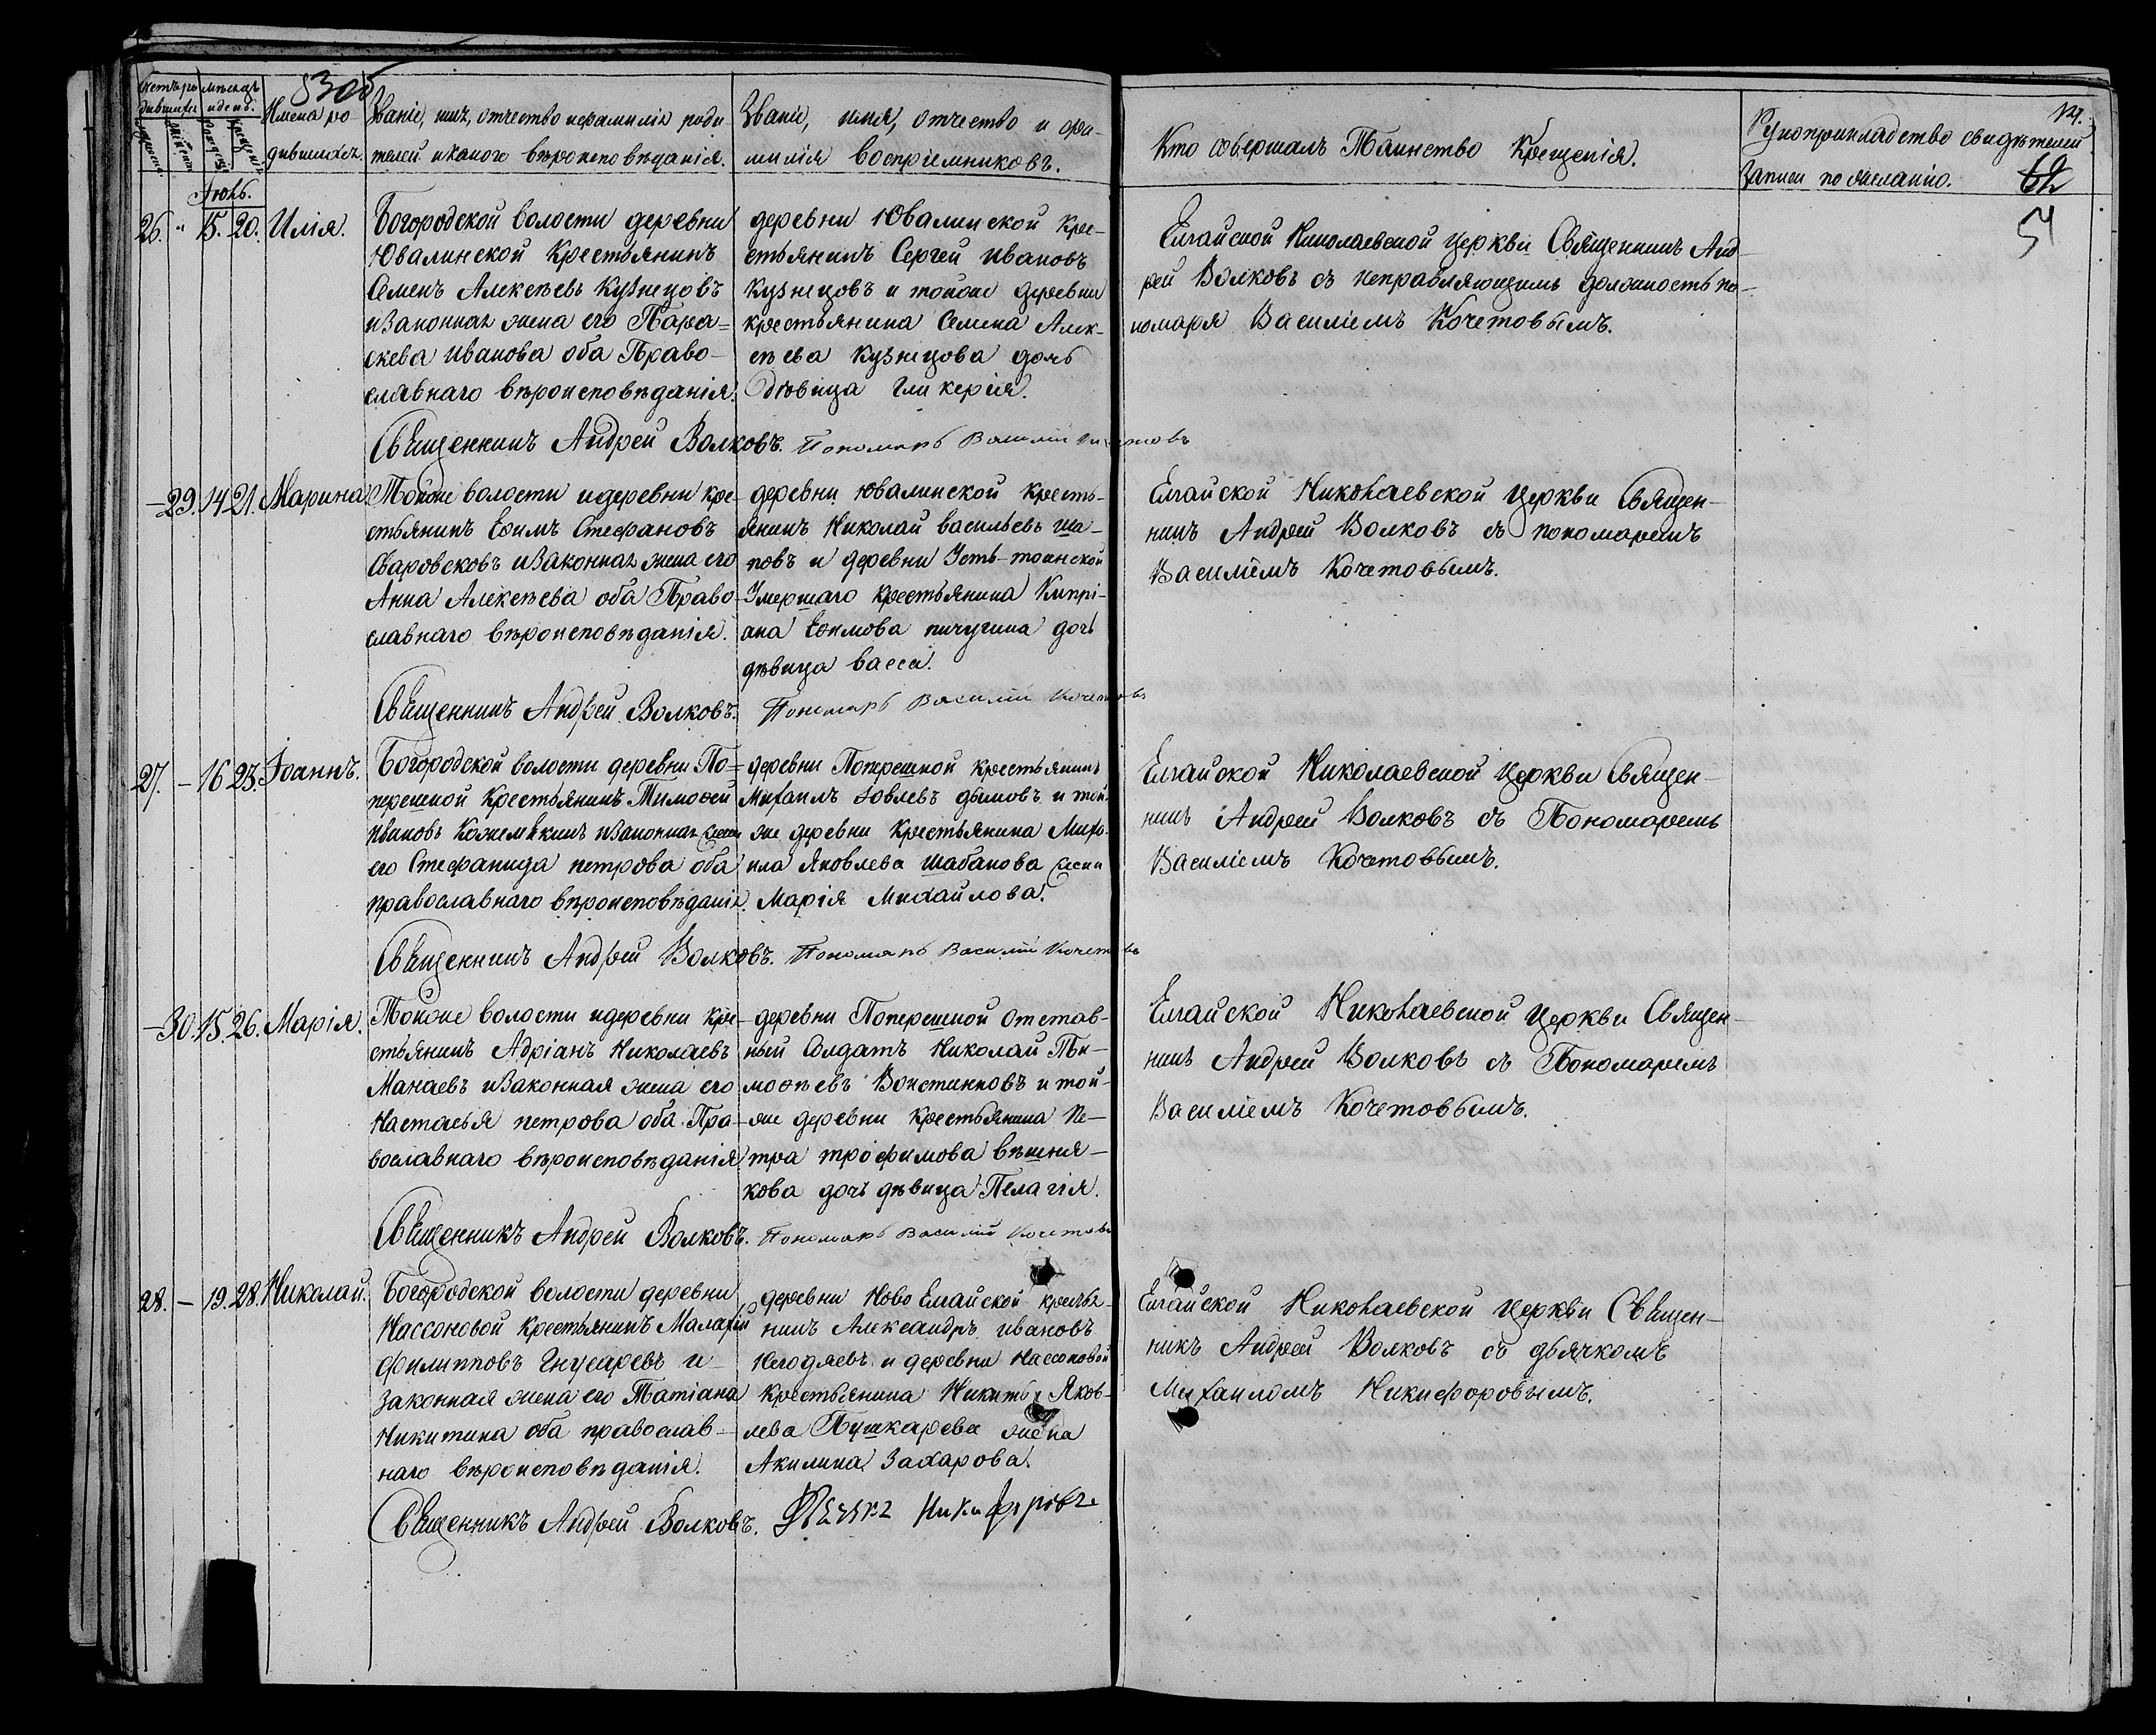 53об
Счетъ родившихся
мѣсяцъ и день.
Имена родившихся.
Званіе, имя, отчество и фамилія роди-
телей и какого вѣроисповѣданія.
Званіе, имя, отчество и фа-
милія воспріемниковъ.
Кто совершалъ Таинство Крещенія.
Рукоприкладство свидѣтелей
записи по желанію.
54
Іюль.
26. " 15. 20. Илія.
Богородской волости деревни
Ювалинской Крестьянинъ
Семенъ Алексѣевъ Кузнецовъ
и Законная жена его Пара-
скева Иванова оба Право-
славнаго вѣроисповѣданія.
деревни Ювалинской Кре-
стьянинъ Сергей Ивановъ
Кузнецовъ и тойже деревни
крестьянина Семена Алек-
сѣева Кузнецова дочь
дѣвица Гликерія.
Елгайской Николаевской Церкви Священникъ Анд-
рей Волковъ съ исправляющимъ должность по-
номаря Василіемъ Кочетовымъ.
Священникъ Андрей Волковъ. Пономарь Василій Кочетовъ
— 29. 14 21. Марина
Тойже волости и деревни кре-
стьянинъ Ефимъ Стефановъ
Сваровсковъ и Законная жена его
Анна Алексѣева оба Право-
славнаго вѣроисповѣданія.
деревни Ювалинской Кресть-
янинъ Николай Васильевъ Ша-
повъ и деревни Усть-тоинской
Умершаго крестьянина Кипрі-
ана Ефимова Пичугина дочь
дѣвица Васса.
Елгайской Николаевской Церкви Священ-
никъ Андрей Волковъ съ пономаремъ
Василіемъ Кочетовымъ.
Священникъ Андрей Волковъ. Пономарь Василій Кочетовъ
27. — 16 23. Іоаннъ.
Богородской волости деревни По-
перешной Крестьянинъ Тимофей
Ивановъ Кожемякинъ и Законная жена
его Стефанида петрова оба
православнаго вѣроисповѣданія.
деревни Поперешной крестьянинъ
Михаилъ Іовлевъ Дымовъ и той
же деревни Крестьянина Миха-
ила Яковлева Шабанова жена
Марія Михайлова.
Елгайской Николаевской Церкви Священ-
никъ Андрей Волковъ съ Пономаремъ
Василіемъ Кочетовымъ.
Священникъ Андрей Волковъ. Пономарь Василій Кочетовъ
— 30. 15. 26. Марія.
Тойже волости и деревни кре-
стьянинъ Адріанъ Николаевъ
Манаевъ и Законная жена его
Настасья петрова оба Пра-
вославнаго вѣроисповѣданія
деревни Поперешной Отстав-
ный Солдатъ Николай Ти-
мофѣевъ Воистиновъ и той-
же деревни Крестьянина Пе-
тра трофимова Вѣшня-
кова дочь дѣвица Пелагія.
Елгайской Николаевской Церкви Священ-
никъ Андрей Волковъ съ Пономаремъ
Василіемъ Кочетовымъ.
Священникъ Андрей Волковъ. Пономарь Василій Кочетовъ
28. — 19. 28. Николай.
Богородской волости деревни
Нассоновой Крестьянинъ Малахій
филипповъ Гнусаревъ и
Законная жена его Татіана
Никитина оба православ-
наго вѣроисповѣданія.
деревни Ново Елгайской кресть-
нинъ Александръ Ивановъ
Негодяевъ и деревни Нассоновой
Крестьянина Никиты Яков-
лева Пушкарева жена
Акилина Захарова.
Елгайской Николаевской Церкви Священ-
никъ Андрей Волковъ съ дьячкомъ
Михаиломъ Никифоровымъ.
Священникъ Андрей Волковъ. Дьячкъ Никифоровъ